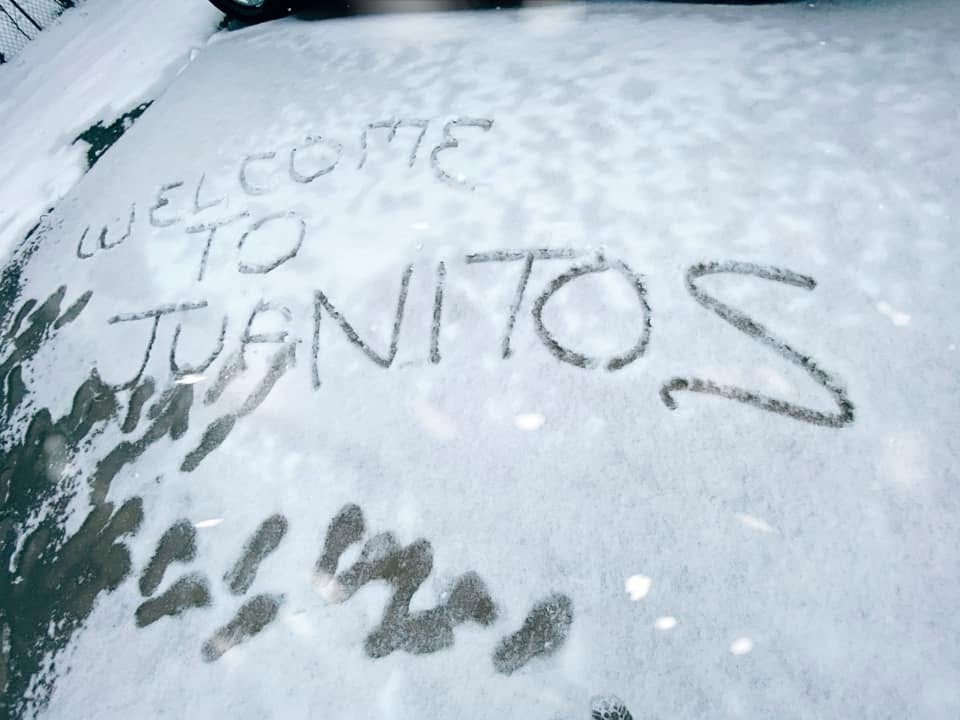 WELCOME
TO
JUANITOS